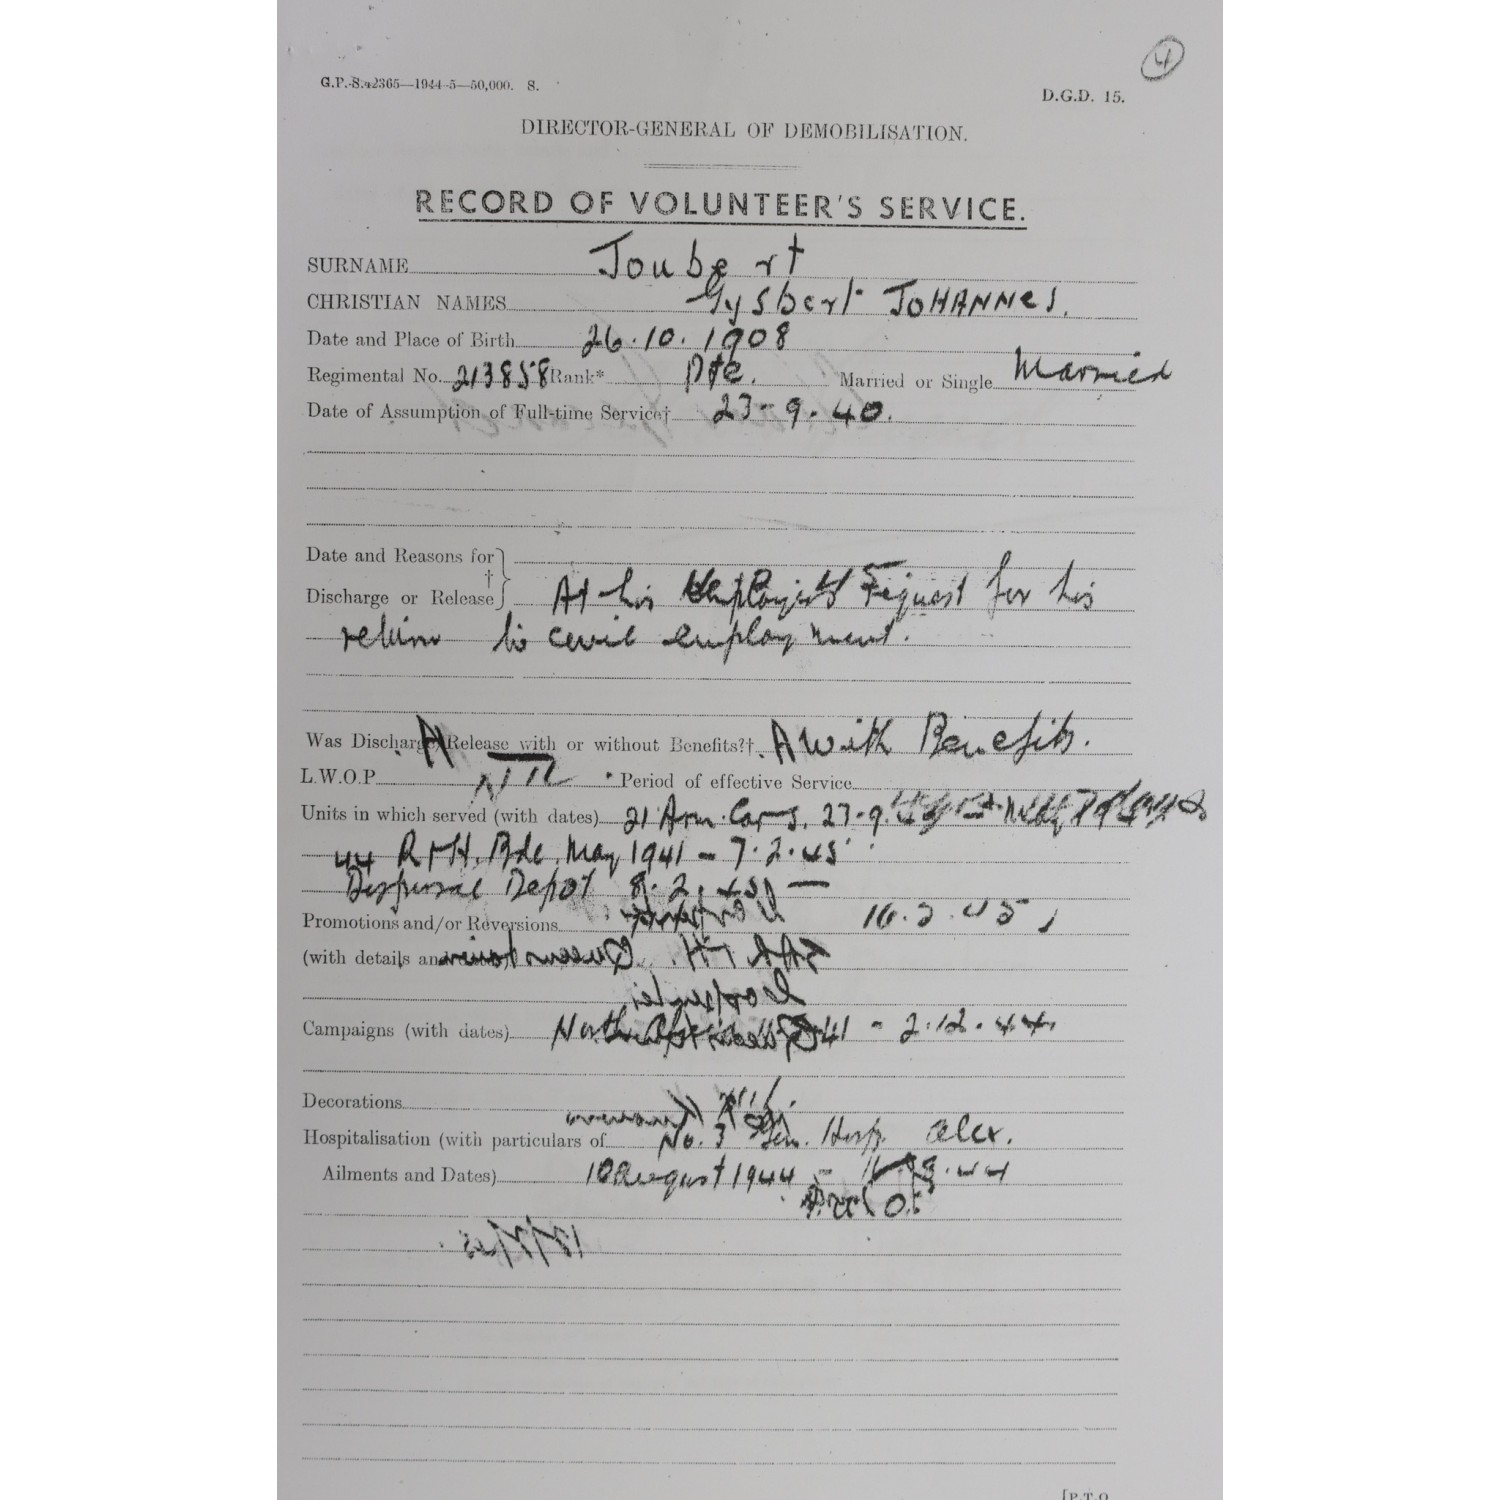 4
G.P.-S.42365—1944-5—50,000. S.
D.G.D. 15.
DIRECTOR-GENERAL OF DEMOBILISATION.
RECORD OF VOLUNTEER'S SERVICE.
SURNAME Joubert
CHRISTIAN NAMES Gysbert JOHANNES.
Date and Place of Birth 26.10.1908
Regimental No. 213858 Rank* Pte. Married or Single Married
Date of Assumption of Full-time Service† 23-9-40.
Date and Reasons for
Discharge or Release† At his Employer's request for his
return to civil employment.
Was Discharge Release with or without Benefits?† A with Benefits.
L.W.O.P. NIL Period of effective Service
Units in which served (with dates) 21 Arm. Cars. 23-9
44 R & H. Bde. May 1941 - 7.2.45
Dispersal Depot 8.2.45 —
Promotions and/or Reversions 16.2.45
(with details an
Campaigns (with dates) North 41 - 2.12.44.
Decorations
Hospitalisation (with particulars of No. 3 Gen. Hosp. Alex.
Ailments and Dates) 10 August 1944 -
[P.T.O.